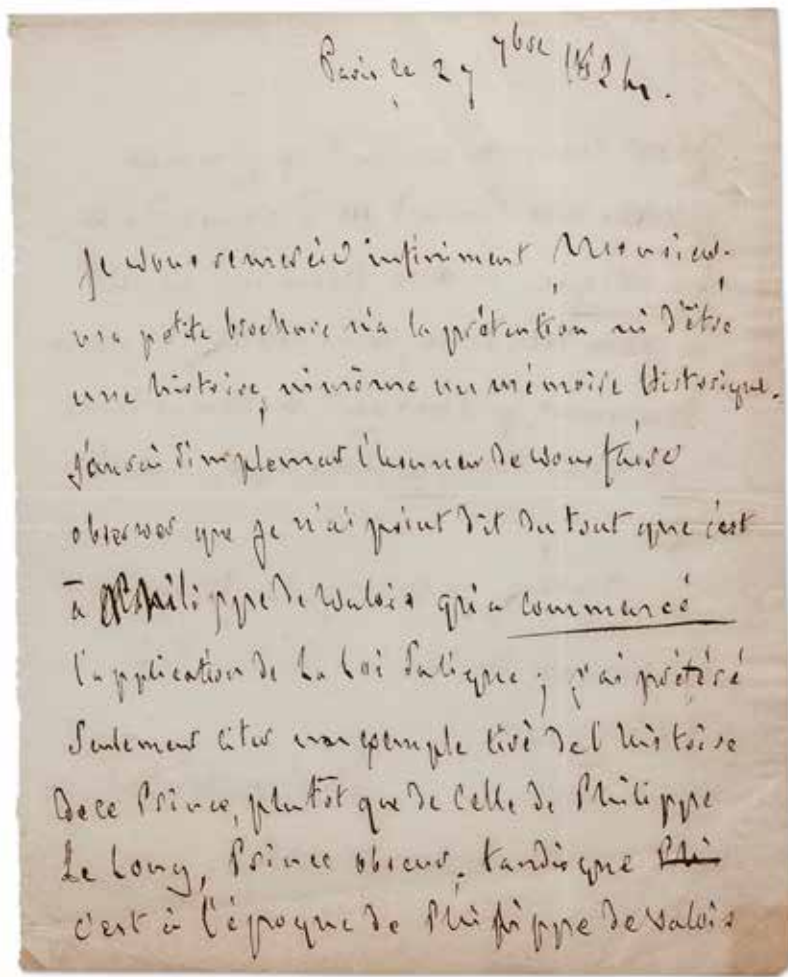 Paris le 27 7bre 1824.
Je vous remercie infiniment, Monsieur.
ma petite brochure n'a la prétention ni d'être
une histoire, ni même un mémoire historique.
j'aurai simplement l'honneur de vous faire
observer que je n'ai point dit du tout que c'est
à Philippe de Valois qu'a commencé
l'application de la loi Salique ; j'ai préféré
seulement citer un exemple tiré de l'histoire
de ce Prince, plutôt que de celle de Philippe
Le Long, Prince obscur, tandis que Phi
c'est à l'époque de Philippe de Valois